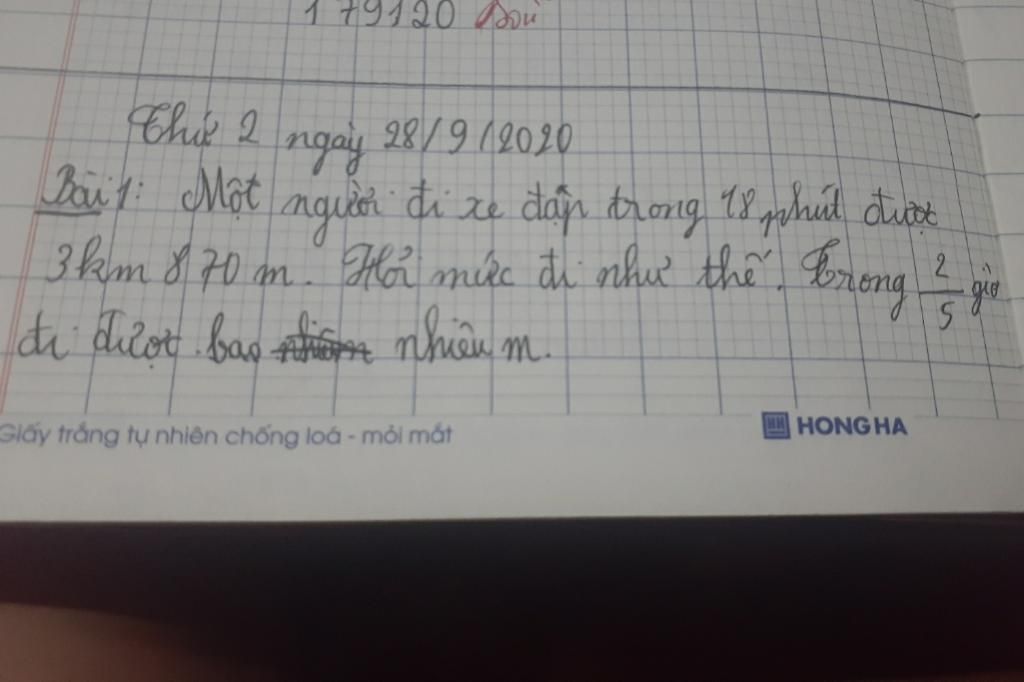 179120
Thứ 2 ngày 28/9/2020
Bài 1: Một người đi xe đạp trong 18 phút được
3km 870 m. Hỏi mức đi như thế. Trong 2/5 giờ
đi được bao nhiêu m.
Giấy trắng tự nhiên chống loá - mỏi mắt
HH HONG HA